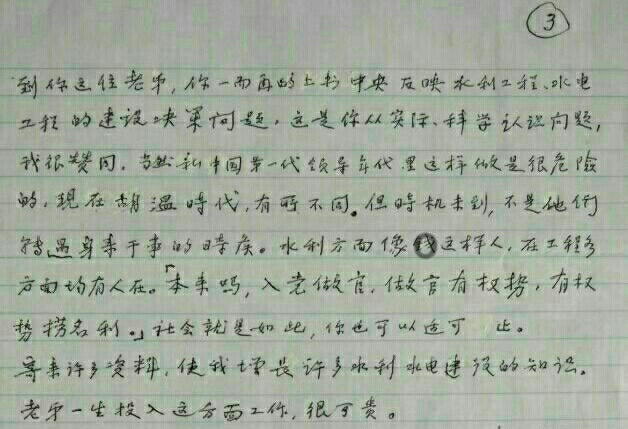 ③
到你这位老弟,你一而再的上书中央反映水利工程、水电
工程的建设决策问题,这是你从实际、科学认识问题,
我很赞同。当然和中国第一代领导年代里这样做是很危险
的,现在胡温時代,有所不同。但時机未到,不是他们
身来干事的時候。水利方面像这样人,在工程多
方面均有人在。「本来吗,入党做官,做官有权势,有权
势捞名利。」社会就是如此,你也可以适可 止。
寄来许多资料,使我增長许多水利水电建设的知识。
老弟一生投入这方面工作,很可贵。